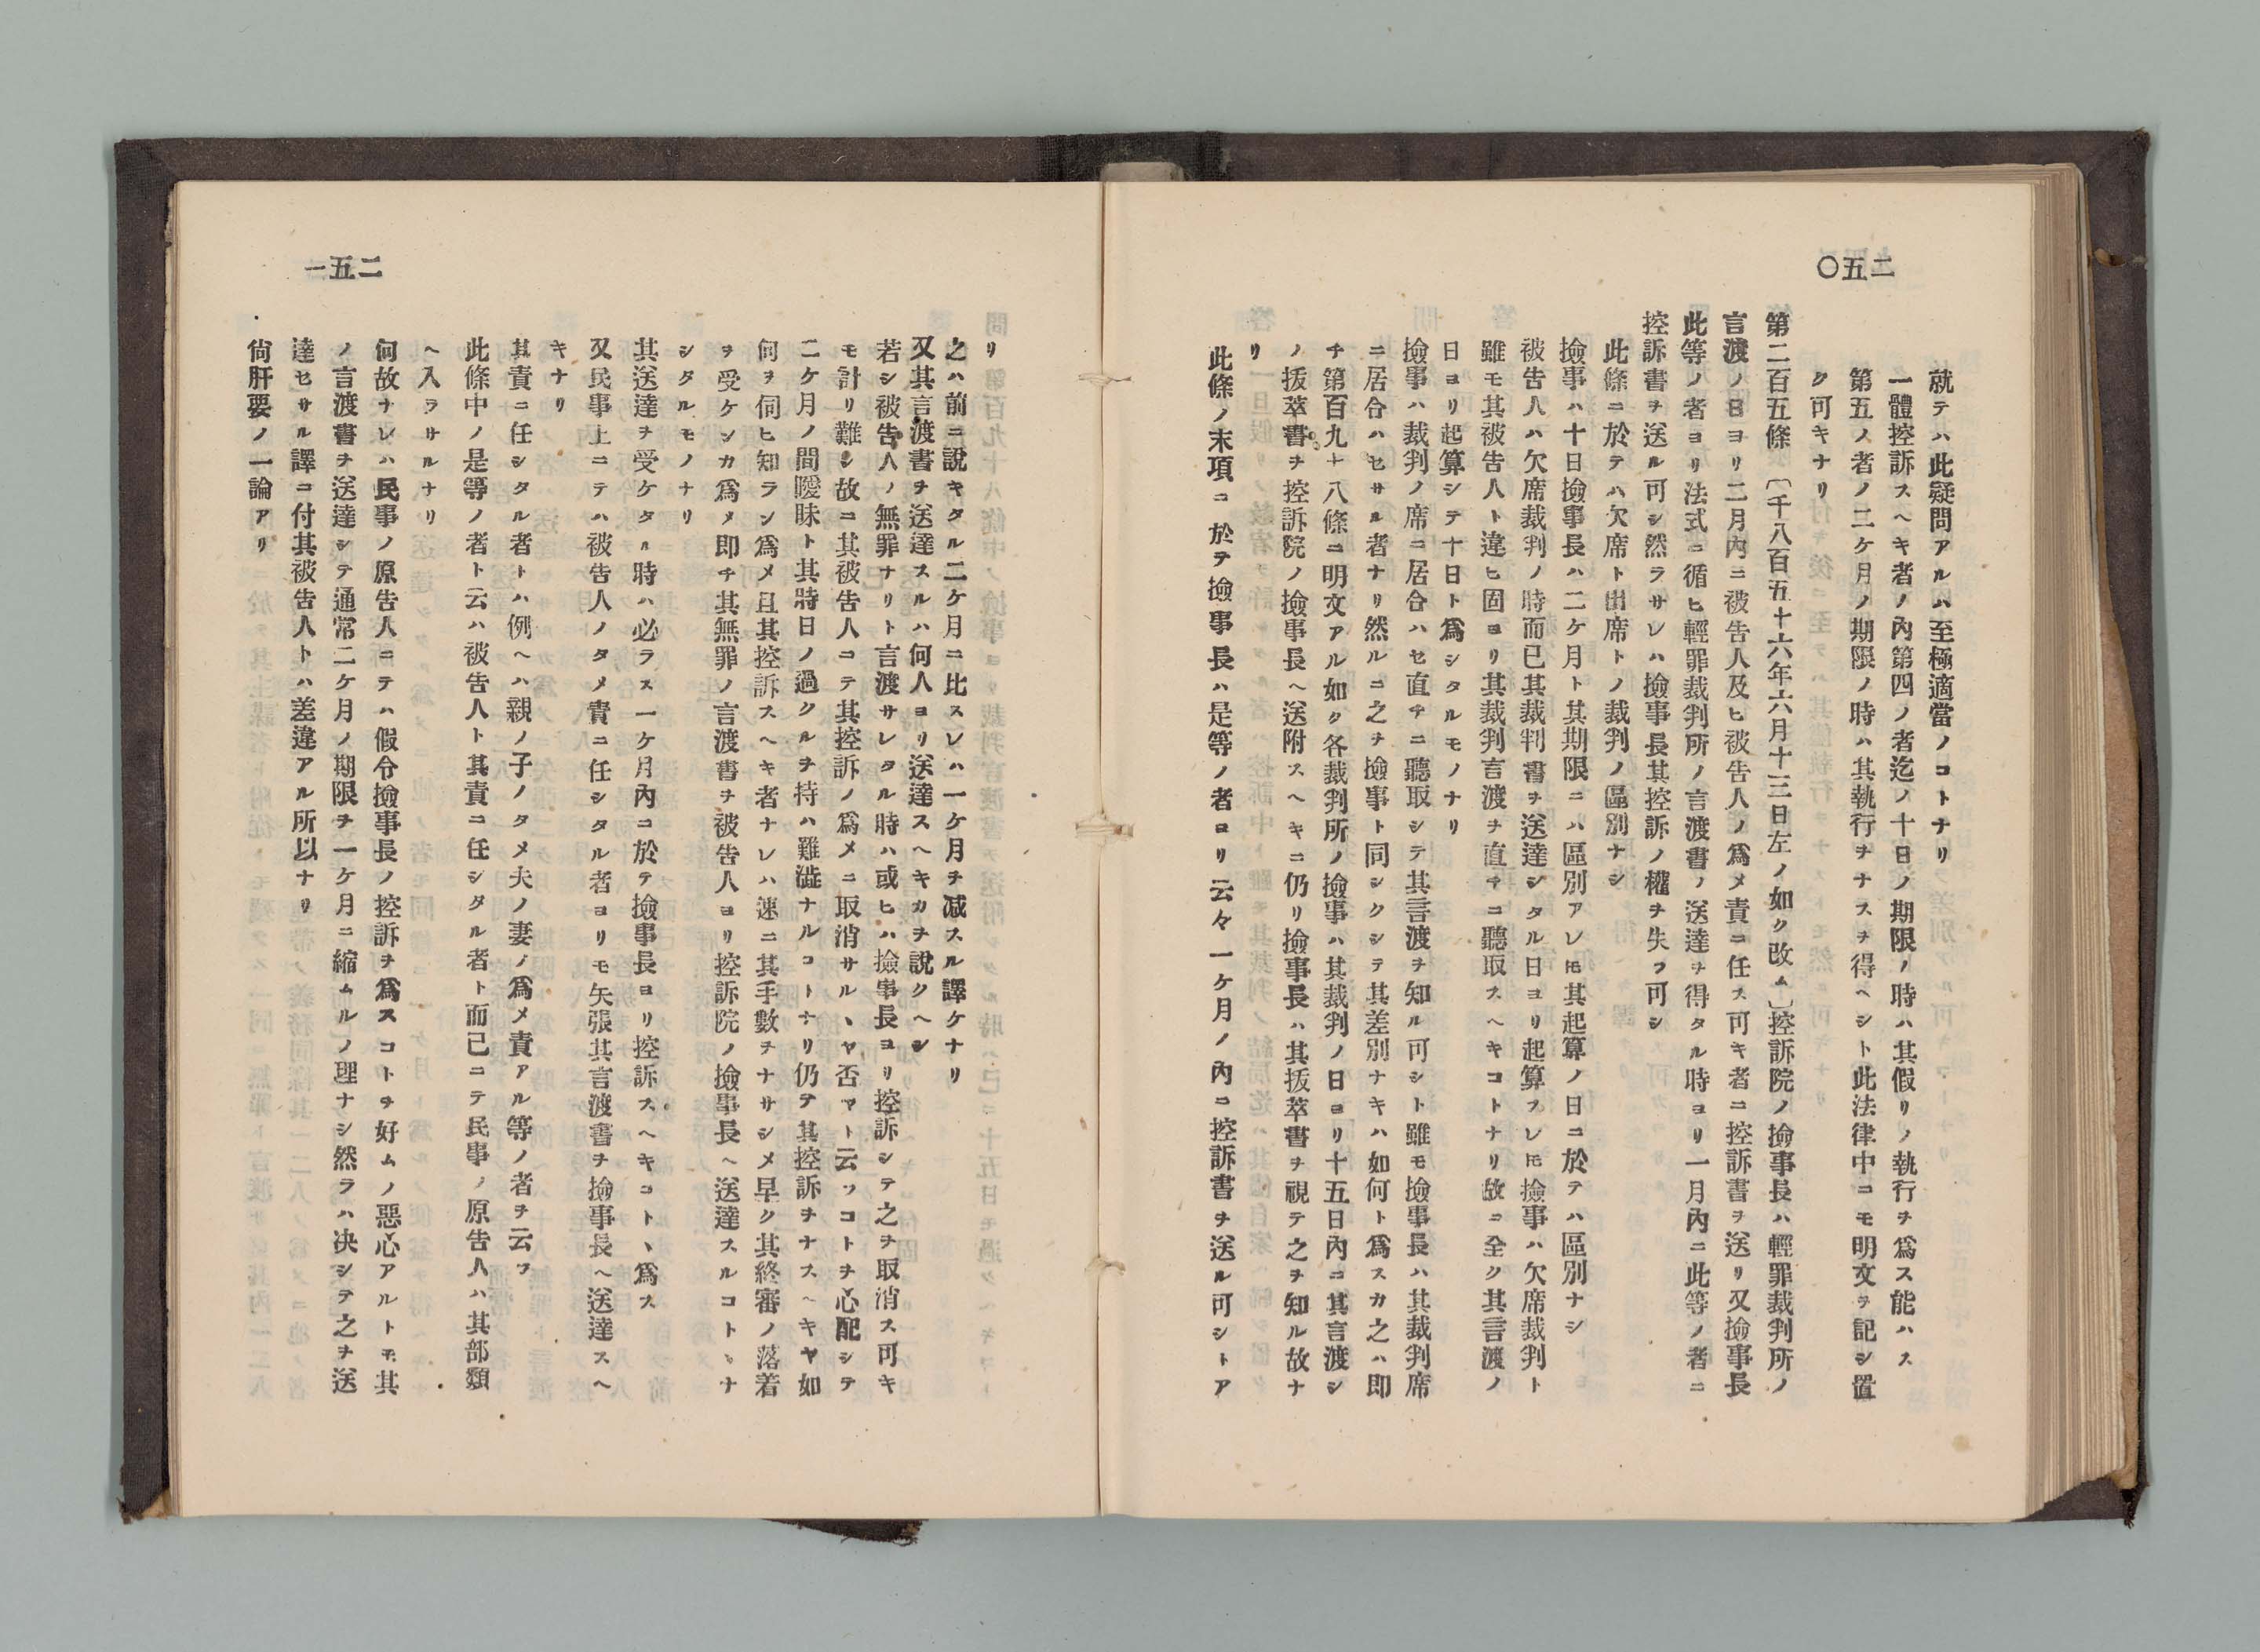 二五〇
就テハ此疑問アルハ至極適當ノコトナリ
一體控訴スヘキ者ノ內第四ノ者迄ノ十日ノ期限ノ時ハ其假リノ執行ヲ爲ス能ハス
第五ノ者ノ二ケ月ノ期限ノ時ハ其執行ヲナスヲ得ヘシト此法律中ニモ明文ヲ記シ置
ク可キナリ
第二百五條 〔千八百五十六年六月十三日左ノ如ク改ム〕控訴院ノ撿事長ハ輕罪裁判所ノ
言渡ノ日ヨリ二月內ニ被告人及ヒ被告人ノ爲メ責ニ任ス可キ者ニ控訴書ヲ送リ又撿事長
此等ノ者ヨリ法式ニ循ヒ輕罪裁判所ノ言渡書ノ送達ヲ得タル時ヨリ一月內ニ此等ノ者ニ
控訴書ヲ送ル可シ然ラサレハ撿事長其控訴ノ權ヲ失フ可シ
此條ニ於テハ欠席ト出席トノ裁判ノ區別ナシ
撿事ハ十日撿事長ハ二ケ月ト其期限ニハ區別アレ𪜈其起算ノ日ニ於テハ區別ナシ
被告人ハ欠席裁判ノ時而已其裁判書ヲ送達シタル日ヨリ起算スレ𪜈撿事ハ欠席裁判ト
雖モ其被告人ト違ヒ固ヨリ其裁判言渡ヲ直チニ聽取スヘキコトナリ故ニ全ク其言渡ノ
日ヨリ起算シテ十日ト爲シタルモノナリ
撿事ハ裁判ノ席ニ居合ハセ直チニ聽取シテ其言渡ヲ知ル可シト雖モ撿事長ハ其裁判席
ニ居合ハセサル者ナリ然ルニ之ヲ撿事ト同シクシテ其差別ナキハ如何ト爲スカ之ハ即
チ第百九十八條ニ明文アル如ク各裁判所ノ撿事ハ其裁判ノ日ヨリ十五日內ニ其言渡シ
ノ抜萃書ヲ控訴院ノ撿事長ヘ送附スヘキニ仍リ撿事長ハ其抜萃書ヲ視テ之ヲ知ル故ナ
リ
此條ノ末項ニ於ヲ撿事長ハ是等ノ者ヨリ云々一ケ月ノ內ニ控訴書ヲ送ル可シトア
二五一
リ
之ハ前ニ說キタル二ケ月ニ比スレハ一ケ月ヲ减スル譯ケナリ
又其言渡書ヲ送達スルハ何人ヨリ送達スヘキカヲ說クヘシ
若シ被告人ノ無罪ナリト言渡サレタル時ハ或ヒハ撿事長ヨリ控訴シテ之ヲ取消ス可キ
モ計リ難シ故ニ其被告人ニテ其控訴ノ爲メニ取消サルヽヤ否ヤト云フコトヲ心配シテ
二ケ月ノ間曖昧ト其時日ノ過クルヲ待ハ難澁ナルコトナリ仍テ其控訴ヲナスヘキヤ如
何ヲ伺ヒ知ラン爲メ且其控訴スヘキ者ナレハ速ニ其手數ヲナサシメ早ク其終審ノ落着
ヲ受ケンカ爲メ即チ其無罪ノ言渡書ヲ被告人ヨリ控訴院ノ撿事長ヘ送達スルコトヽナ
シタルモノナリ
其送達ヲ受ケタル時ハ必ラス一ケ月內ニ於テ撿事長ヨリ控訴スヘキコトヽ爲ス
又民事上ニテハ被告人ノタメ責ニ任シタル者ヨリモ矢張其言渡書ヲ撿事長ヘ送達スヘ
キナリ
其責ニ任シタル者トハ例ヘハ親ノ子ノタメ夫ノ妻ノ爲メ責アル等ノ者ヲ云フ
此條中ノ是等ノ者ト云ハ被告人ト其責ニ任シタル者ト而已ニテ民事ノ原告人ハ其部類
ヘ入ラサルナリ
何故ナレハ民事ノ原告人ニテハ假令撿事長ノ控訴ヲ爲スコトヲ好ムノ惡心アルトモ其
ノ言渡書ヲ送達シテ通常二ケ月ノ期限ヲ一ケ月ニ縮ムルノ理ナシ然ラハ決シテ之ヲ送
達セサル譯ニ付其被告人トハ差違アル所以ナリ
尙肝要ノ一論アリ